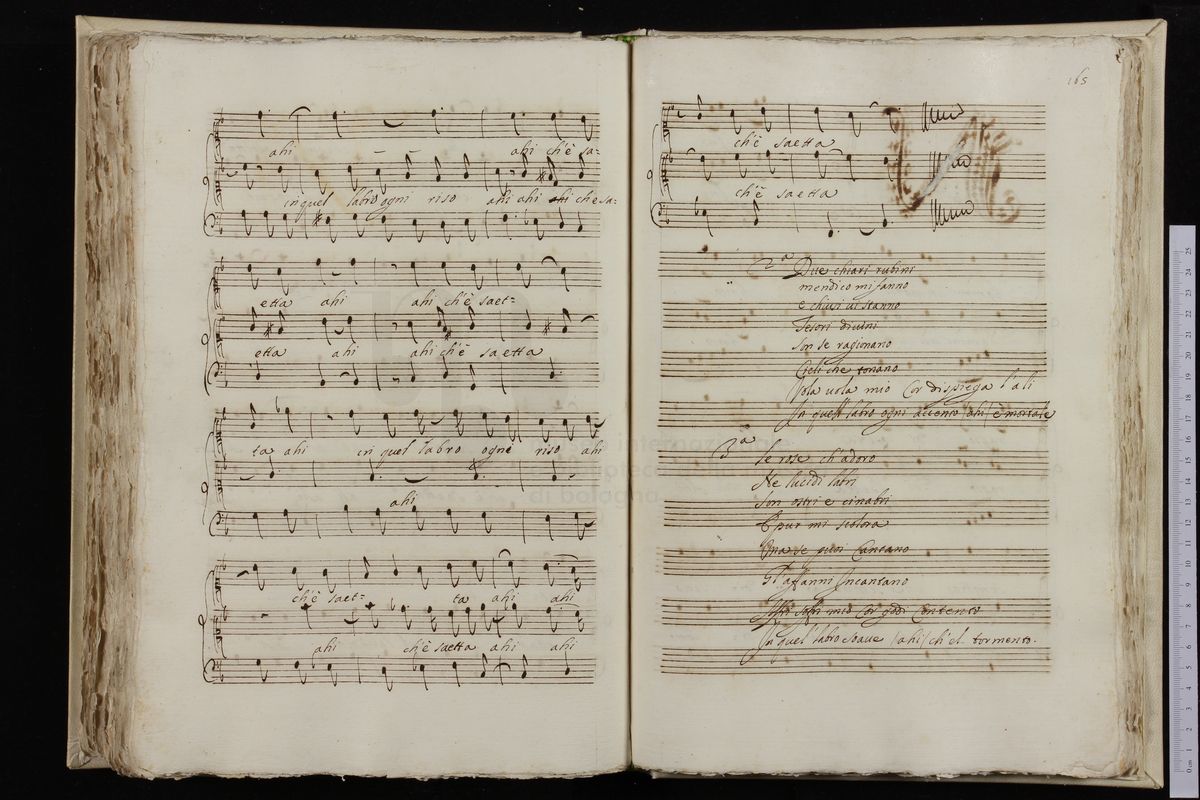 ahi ahi ch'è sa-
in quel labro ogni riso ahi ahi ahi ch'e sa-
etta ahi ahi ch'è saet-
etta ahi ahi ch'è saetta
ta ahi in quel labro ogni riso ahi
ahi
ch'è saet- ta ahi ahi
ahi ch'è saetta ahi ahi
165
ch'è saetta
ch'è saetta
2ª Due chiari rubini
mendico mi fanno
e chiusi ui stanno
Tesori diuini
Son se ragionano
Cieli che tonano
Vola uola mio Cor dispiega l'ali
In quel labro ogni accento /ahi/ è mortale
3ª Le rose ch'adoro
Ne lucidi labri
Son ostri e cinabri
E pur mi scolora
Ma se poi Cantano
Gl'affanni Incantano
mio Cor godi Contento
In quel labro soaue /ahi/ ch'el tormento.
museo internazionale
e biblioteca
di bologna